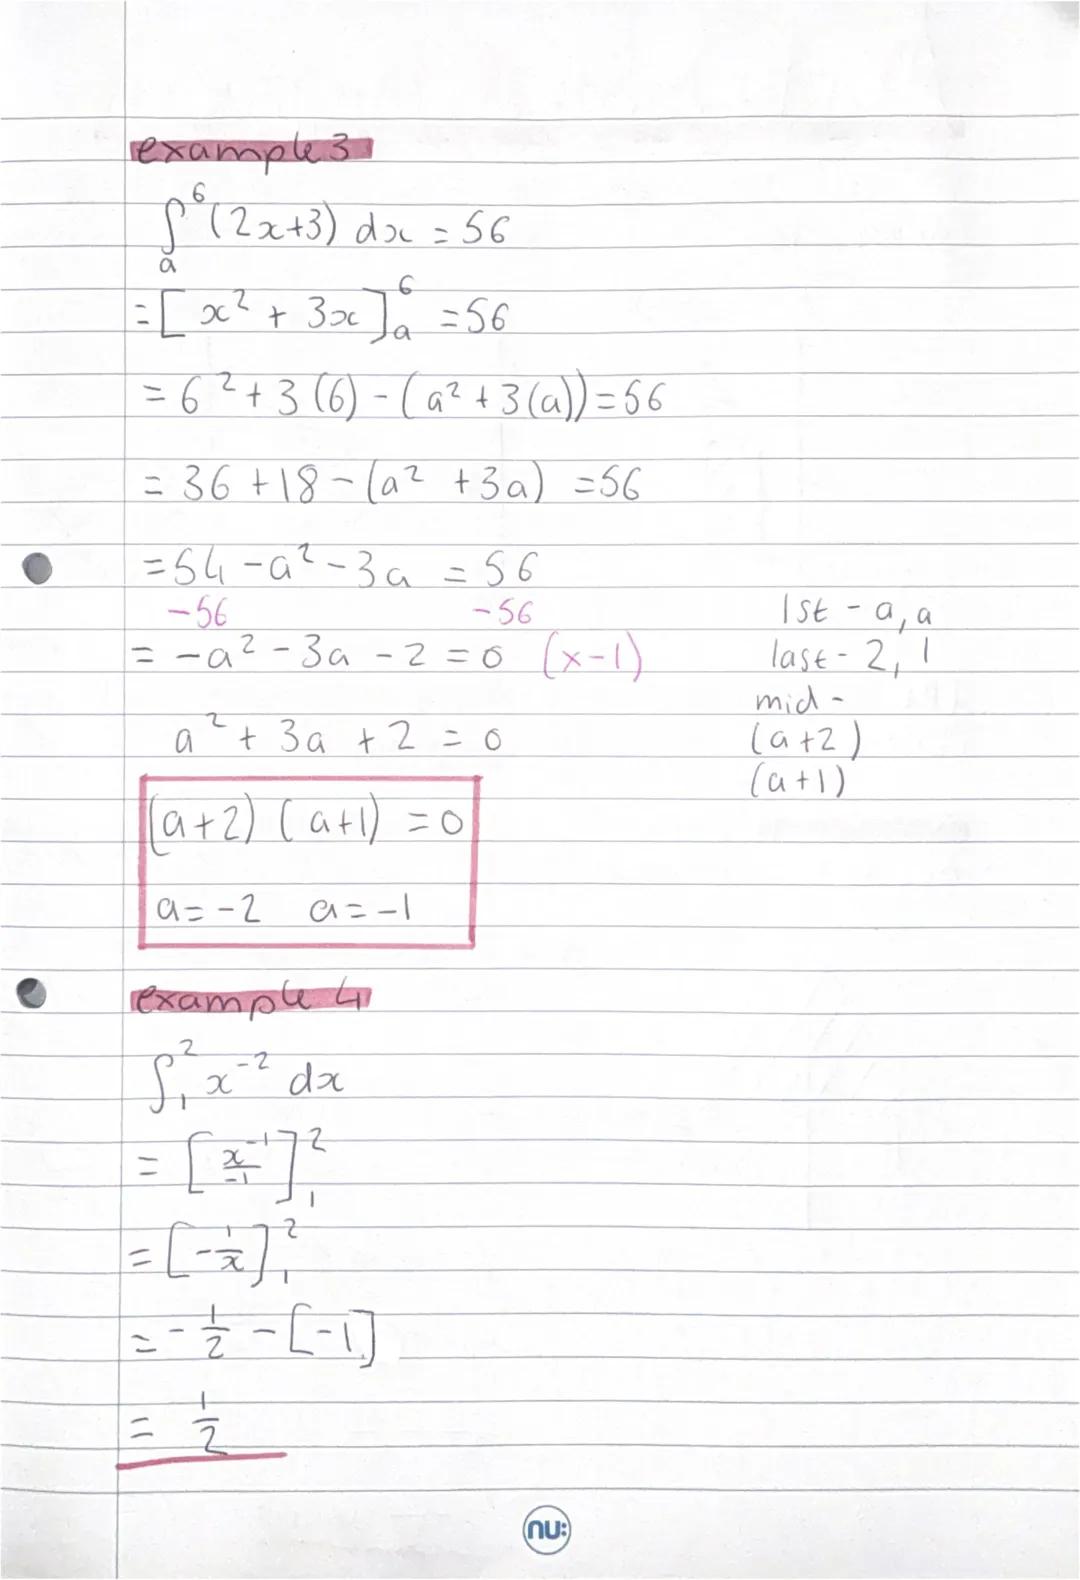 example 3
∫ₐ⁶ (2x+3) dx = 56
= [x² + 3x]ₐ⁶ = 56
= 6² + 3(6) - (a² + 3(a)) = 56
= 36 + 18 - (a² + 3a) = 56
= 54 - a² - 3a = 56
-56 -56
= -a² - 3a - 2 = 0 (x-1)
a² + 3a + 2 = 0
(a+2) (a+1) = 0
a = -2 a = -1
1st - a, a
last - 2, 1
mid -
(a+2)
(a+1)
example 4
∫₁² x⁻² dx
= [x⁻¹/-1]₁²
= [-1/x]₁²
= -1/2 - [-1]
= 1/2
nu: